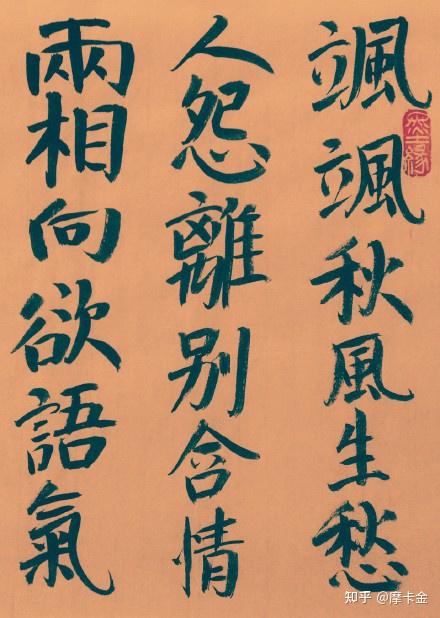 颯颯秋風生愁
人怨離别含情
兩相向欲語氣
知乎 @摩卡金